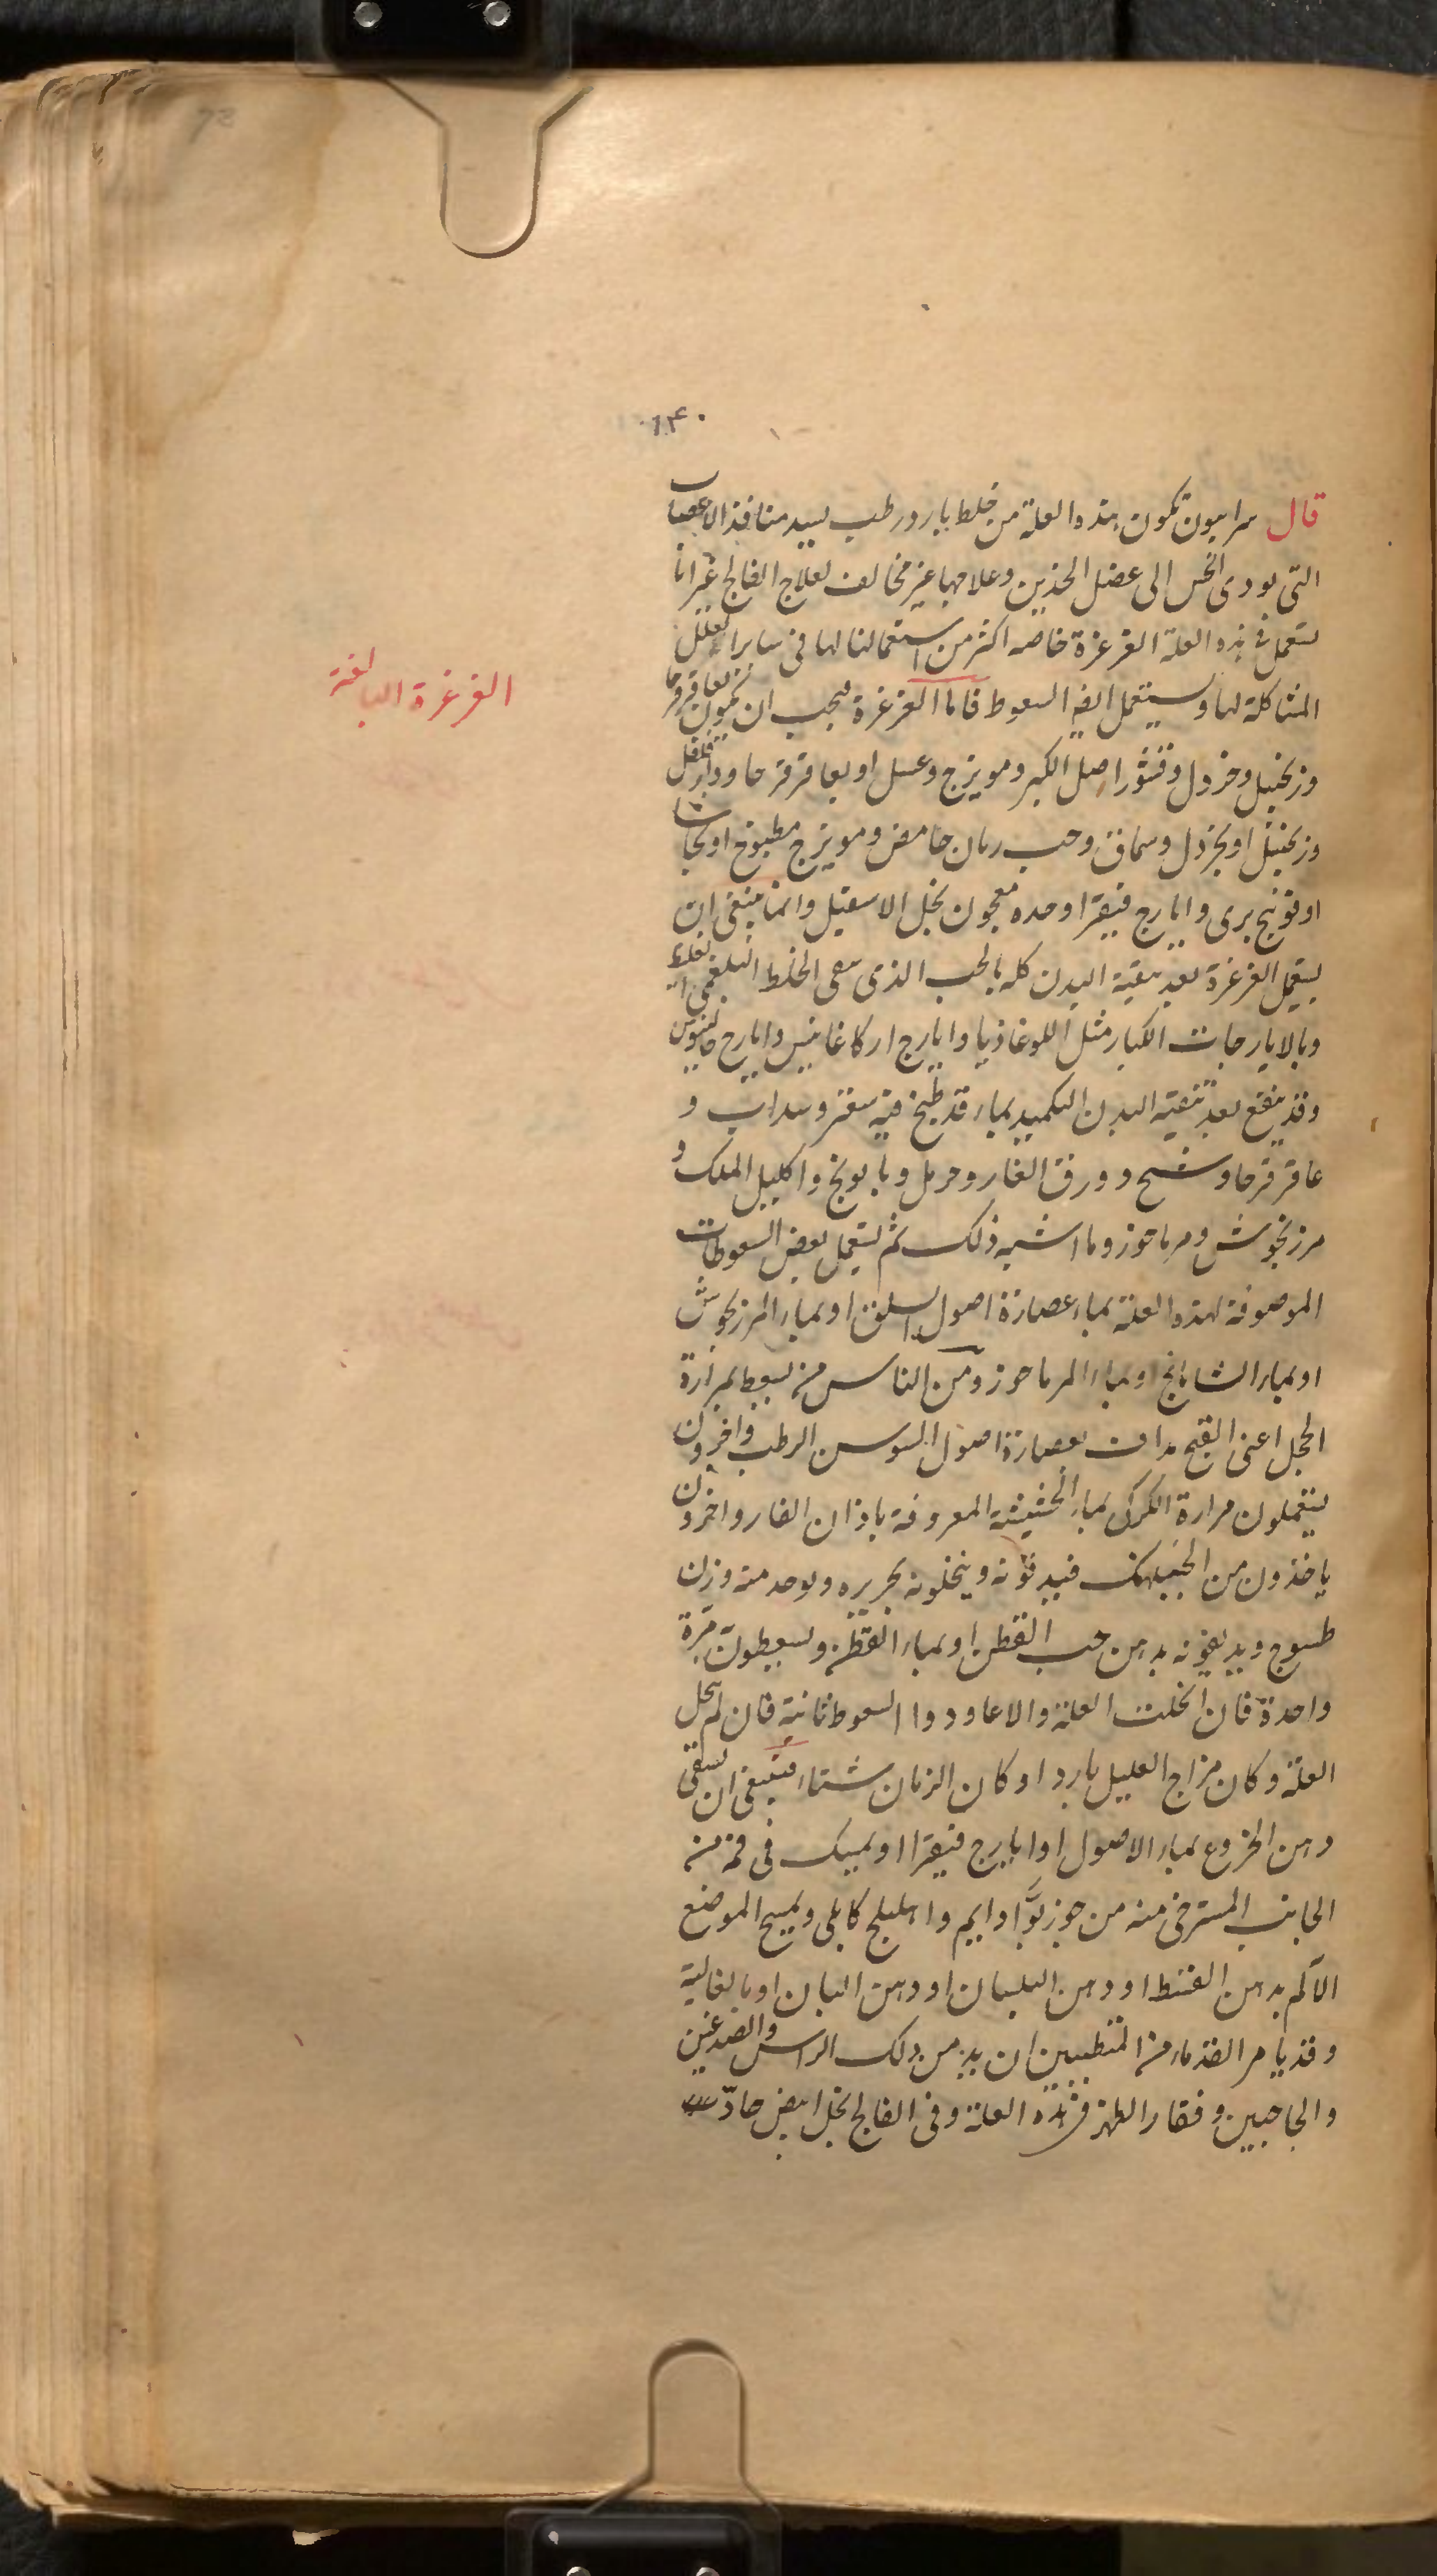 ١٤٠
قال سرابيون تكون هذه العلة من خلط بارد رطب يسد منافذ الاعصاب
التى يودى الحس الى عضل الخدين وعلاجها غير مخالف لعلاج الفالج غير انا
نستعمل فى هذه العلة الغرغرة خاصه اكثر من استعمالنا لها فى ساير العلل
المشاكلة لها ويستعمل ايضا السعوط فاما الغرغرة فيجب ان تكون بعاقرقرحا
وزنجبيل وخردل وقشور اصل الكبر ومويزج وعسل او بعاقرقرحا ودارفلفل
وزنجبيل او بخردل وسماق وحب رمان حامض ومويزج مطبوخ او بحاشا
او فوتنج برى وايارج فيقرا وحده معجون بخل الاسقيل وانما ينبغى ان
يستعمل الغرغرة بعد تنقية البدن كله بالحب الذى ينقى الخلط البلغمى
وبالايارجات الكبار مثل اللوغاذيا وايارج اركاغانيس وايارج جالينوس
وقد ينفع بعد تنقية البدن التكميد بماء قد طبخ فيه سعتر وسداب و
عاقرقرحا وشيح وورق الغار وحرمل وبابونج واكليل الملك و
مرزنجوش ومرماحوز وما اشبه ذلك ثم يستعمل بعض السعوطات
الموصوفة لهذه العلة بماء عصارة اصول السلق او بماء المرزنجوش
او بماء الشابانج او بماء المرماحوز ومن الناس من يسعط بمرارة
الحجل اعنى القبج مداف بعصارة اصول السوسن الرطب واخرون
يستعملون مرارة الكركى بماء الحشيشة المعروفة باذان الفار واخرون
ياخذون من الجبلهنك فيدقونه وينخلونه بحريره ويوخد منه وزن
طسوج ويديفونه بدهن حب القطن او بماء القطن ويسعطون مرة
واحدة فان انحلت العلة والا عاودوا السعوط ثانية فان لم ينحل
العلة وكان مزاج العليل بارد او كان الزمان شتاء فينبغى ان يسقى
دهن الخروع بماء الاصول او ايارج فيقرا او يمسك فى فمه من
الجانب المسترخى منه من جوز بوا دايم واهليلج كابلى ويمسح الموضع
الآلم بدهن القسط او دهن البلسان او دهن البان او بالغالية
وقد يامر القدماء من المتطببين ان يدمن دلك الراس والصدغين
والحاجبين وفقار الظهر فى هذه العلة وفى الفالج بخل ابيض حادّ
الغرغرة البالغة